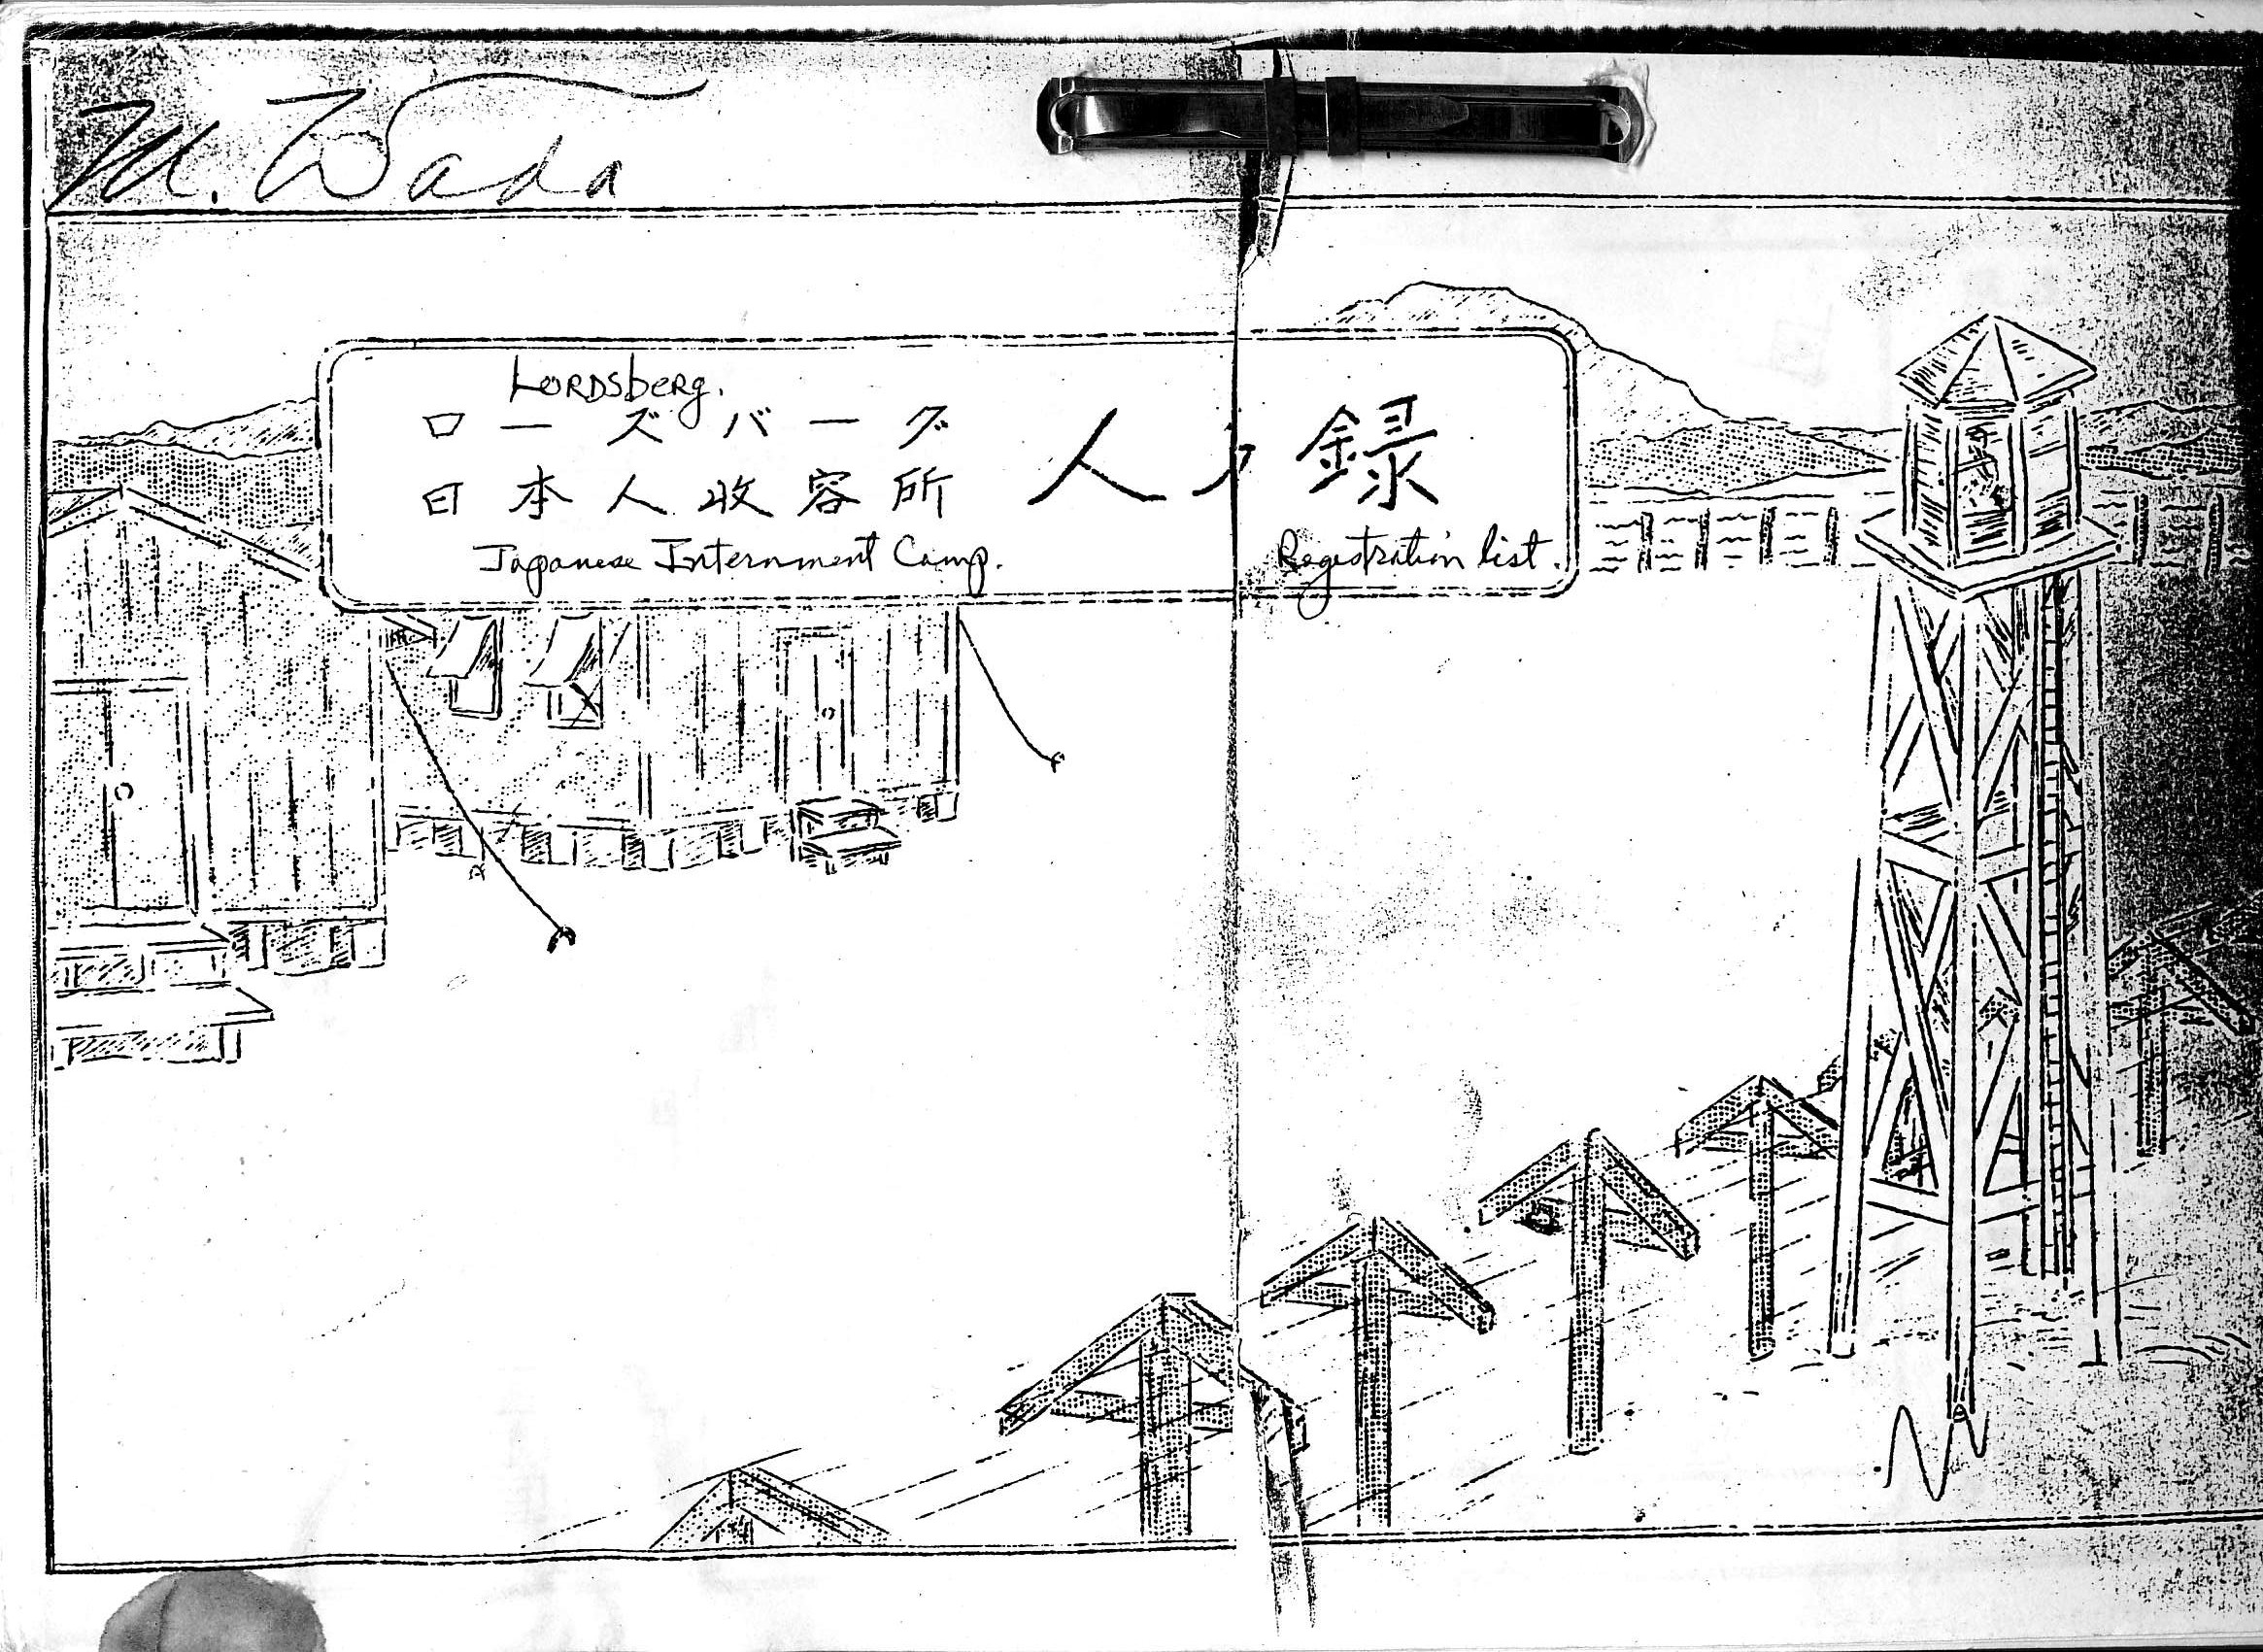 M. Wada
Lordsberg.
ローズバーグ
日本人收容所
人 録
Japanese Internment Camp.
Registration list.